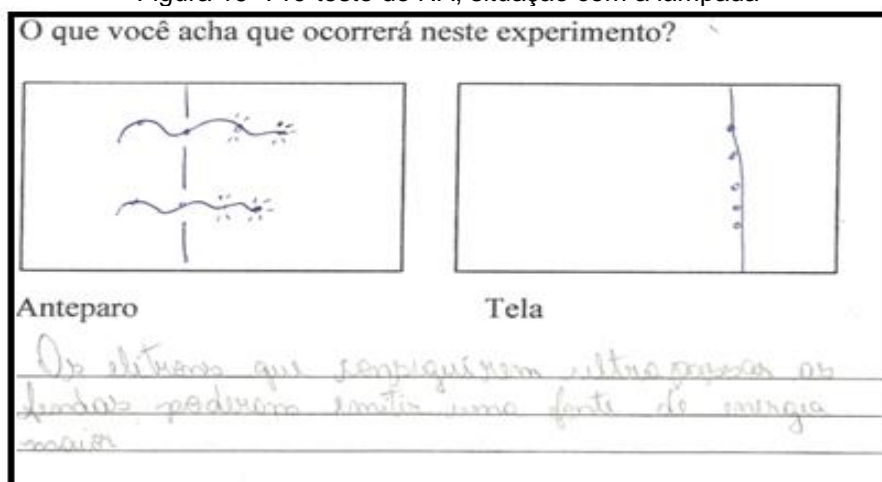 O que você acha que ocorrerá neste experimento?
Anteparo
Tela
Os elétrons que conseguirem ultrapassar as
fendas poderam emitir uma fonte de energia
maior